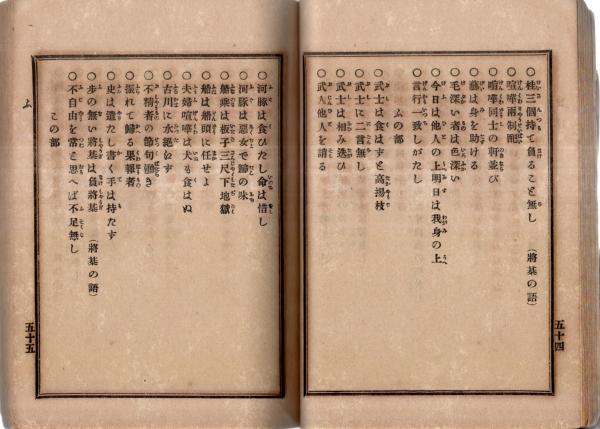 ○桂三個持て負ること無し (將棊の語)
○喧嘩兩制配
○喧嘩同士の軒並び
○藝は身を助ける
○毛深い者は色深い
○今日は他人の上明日は我身の上
○言行一致しがたし
ふの部
○武士は食はずと高楊枝
○武士に二言無し
○武士は相み互ひ
○武人他人を誚る
五十四
○河豚は食ひたし命は惜し
○河豚は惡女で蹄の味
○船乘は板子三尺下地獄
○船は船頭に任せよ
○夫婦喧嘩は犬も食はぬ
○古川に水絕たず
○不精者の節句働き
○振れて歸る果報者
○史は遣たし書く手は持たず
○步の無い將棊は負將棊 (將棊の語)
○不自由を常と思へば不足無し
この部
ふ
五十五